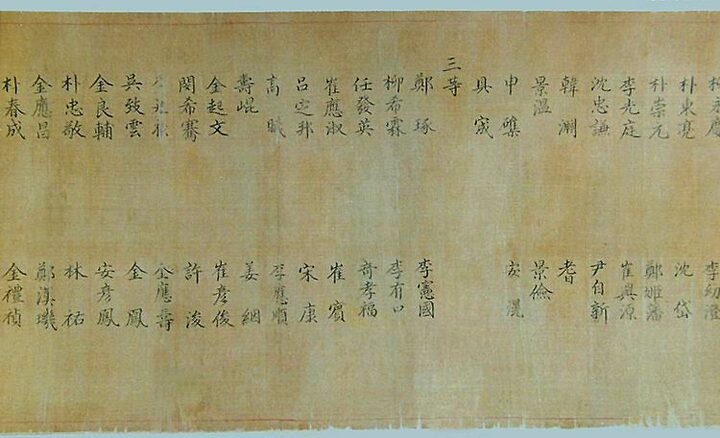 李幼澄
朴東亮 沈岱
朴崇元 鄭姬藩
李光庭 崔興源
沈忠謙 尹自新
韓淵 耆
景溫 景儉
申磼 安滉
具宬
三等
鄭琢 李憲國
柳希霖 李有口
任發英 奇孝福
崔應淑 崔賓
呂定邦 宋康
高曦 李應順
壽崐 姜絪
金起文 崔彦俊
閔希騫 許浚
金應壽
吳致雲 金鳳
金良輔 安彦鳳
朴忠敬 林祐
金應昌 鄭漢璣
朴春成 金禮楨